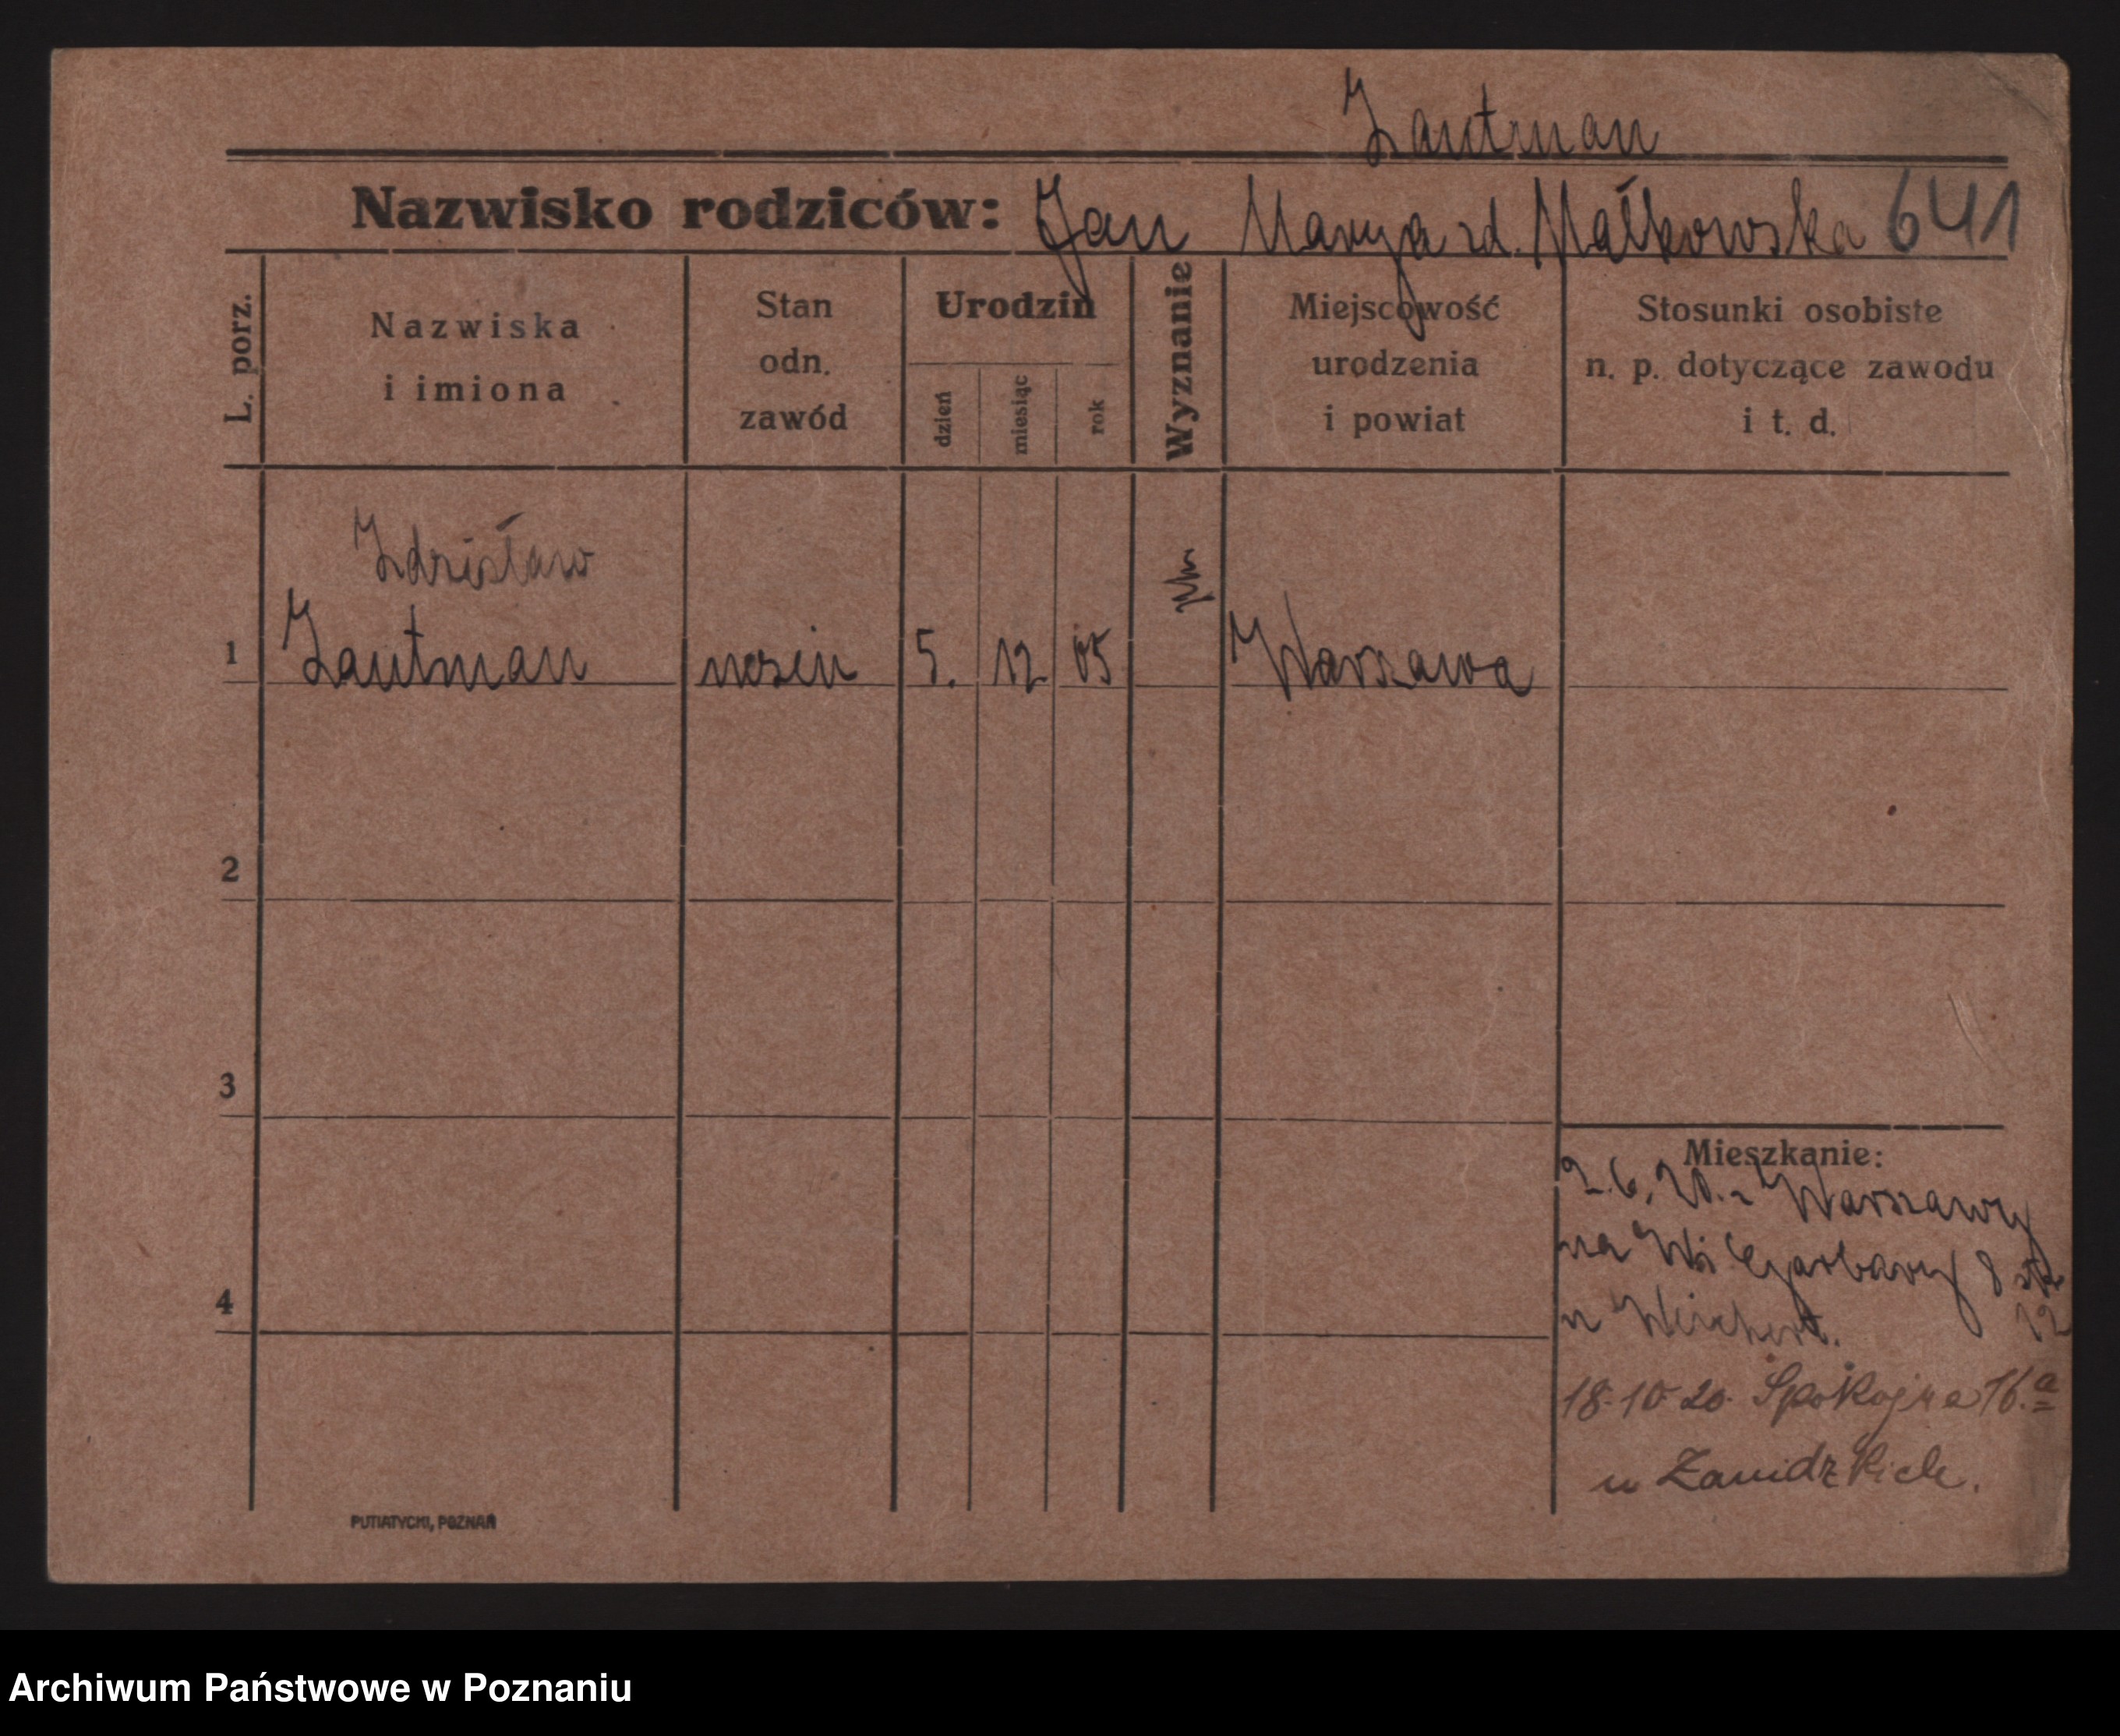 Zautman
Nazwisko rodziców: Jan Marya zd. Małkowska 641
L. porz.
Nazwiska
i imiona
Stan
odn.
zawód
Urodzin
dzień
miesiąc
rok
Wyznanie
Miejscowość
urodzenia
i powiat
Stosunki osobiste
n. p. dotyczące zawodu
i t. d.
Zdzisław
1 Zautman uczeń 5. 12 05 Warszawa
2
3
4
Mieszkanie:
2.6.20. z Warszawy
na Garbary 8
u Weichert.
18-10 20. Spokojna 16.a
u Zawidzkich.
PUTIATYCKI, POZNAŃ
Archiwum Państwowe w Poznaniu